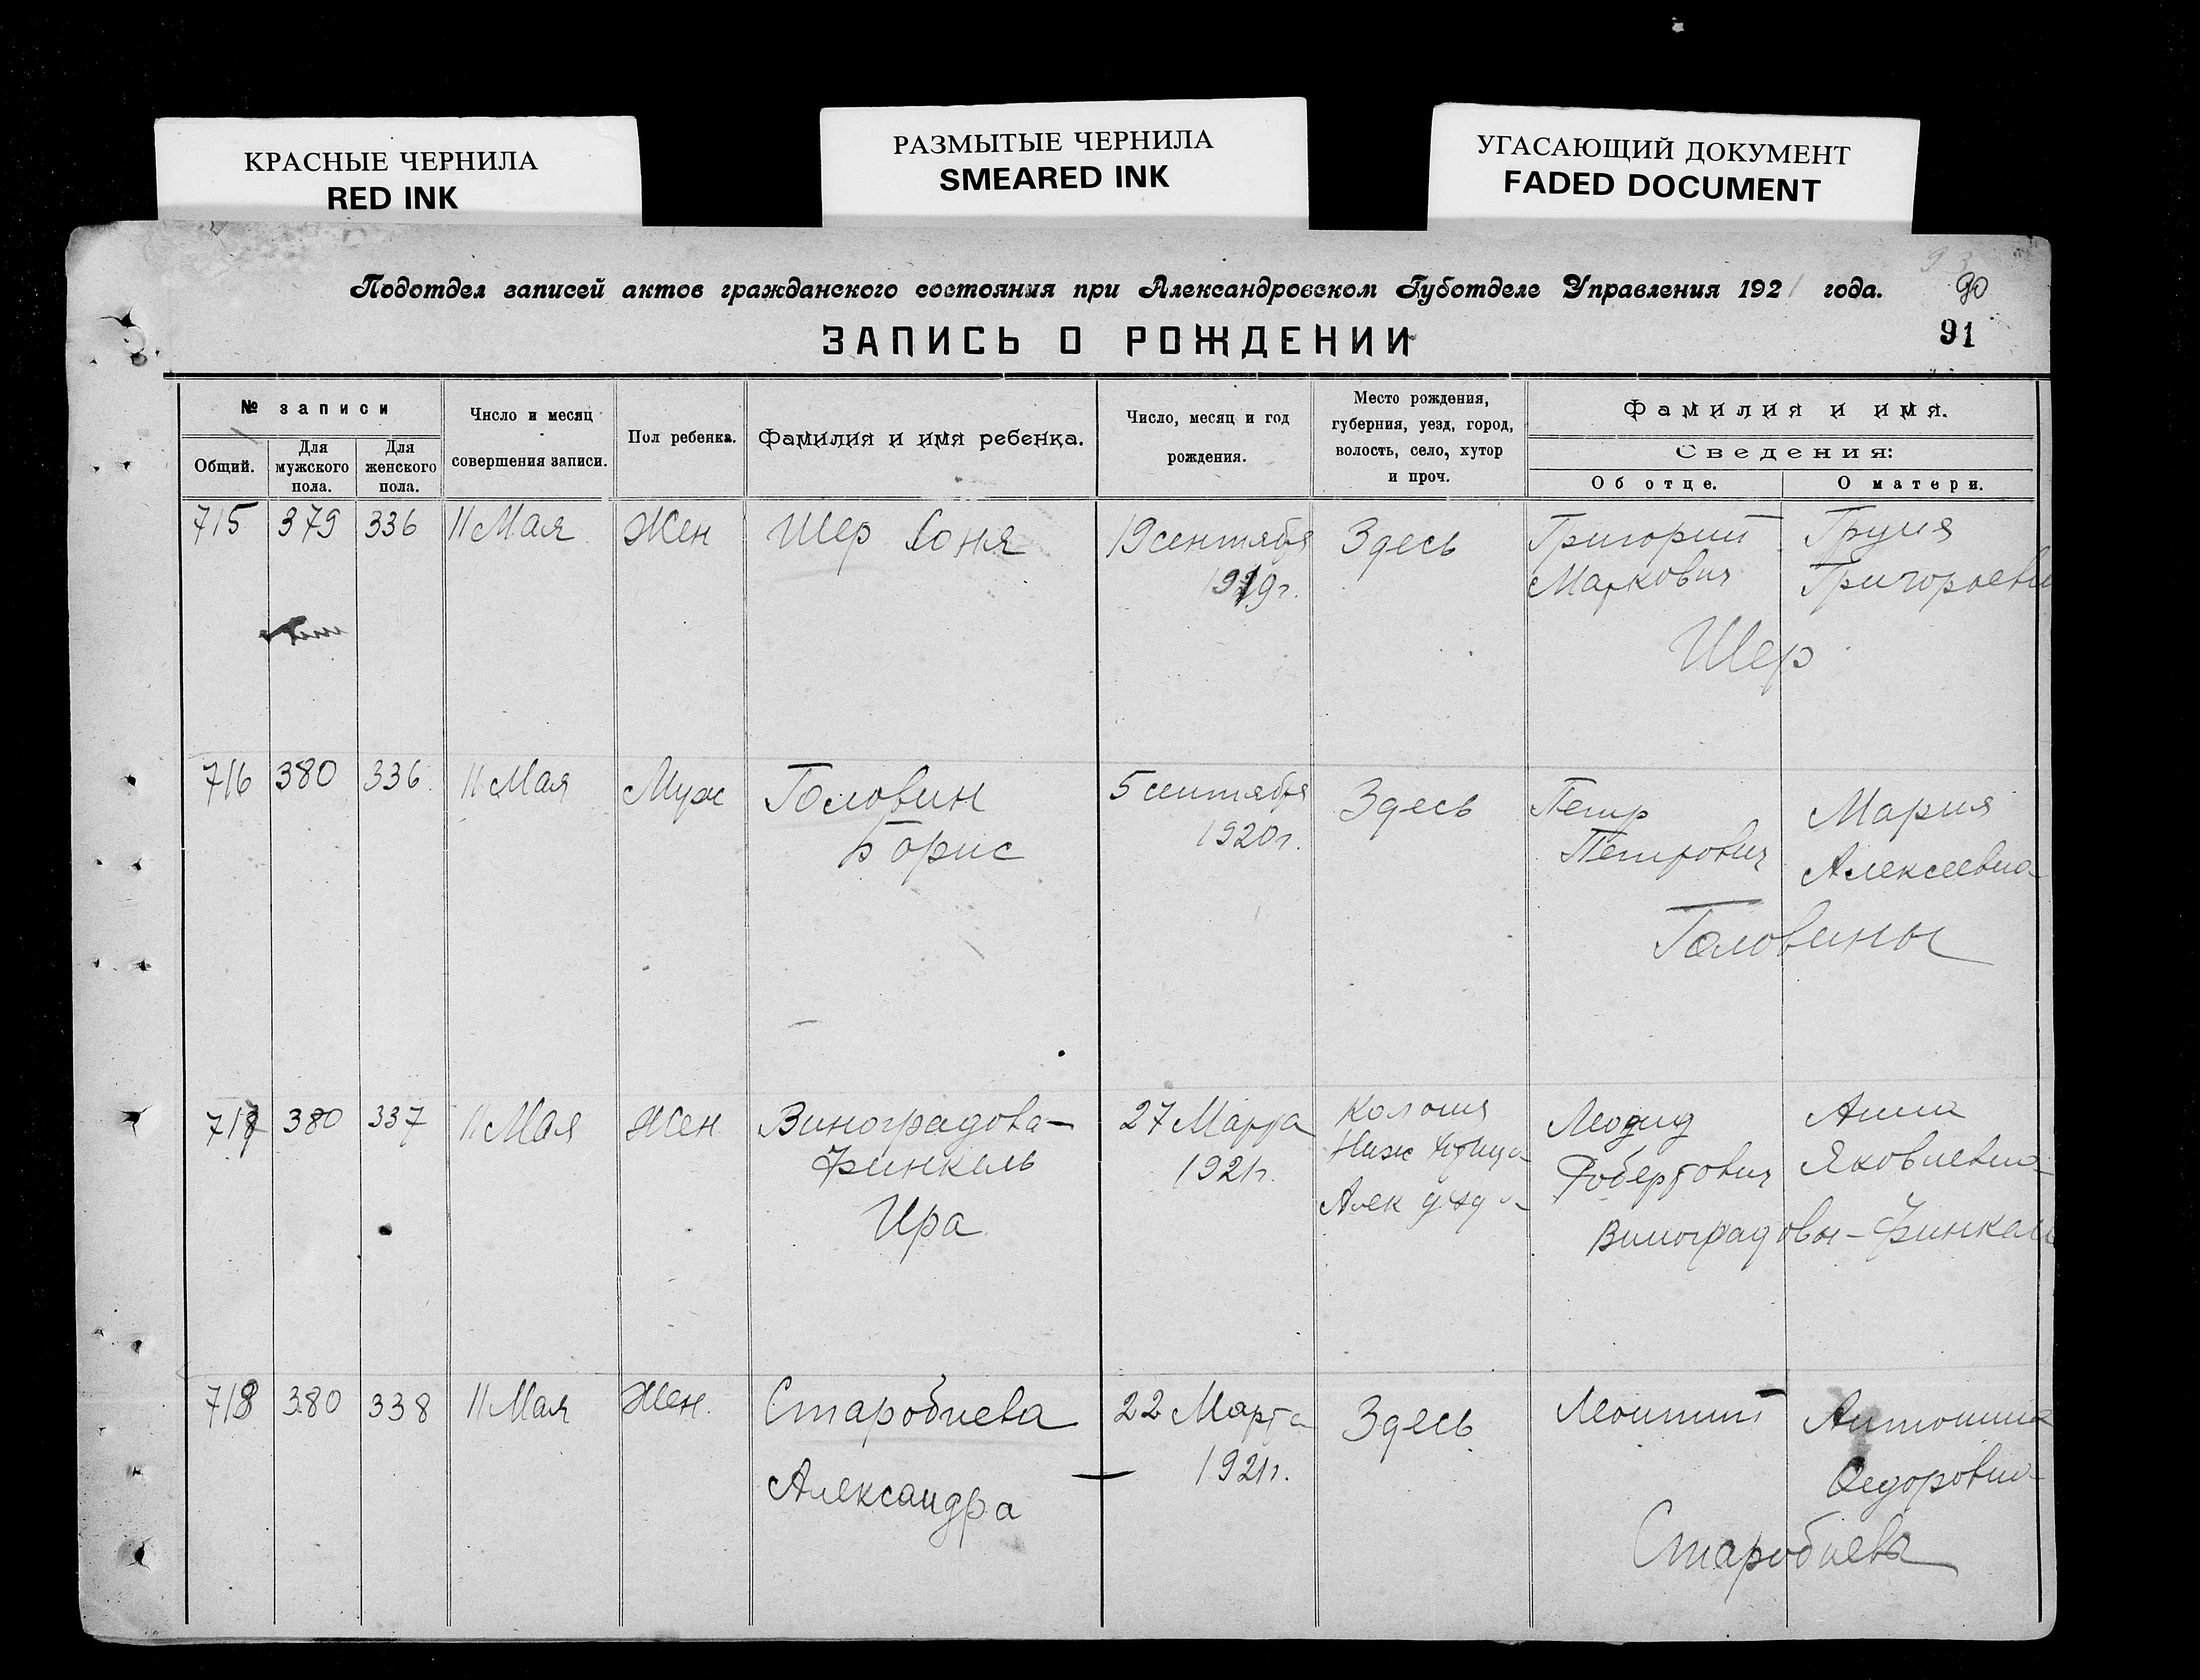 КРАСНЫЕ ЧЕРНИЛА
RED INK
РАЗМЫТЫЕ ЧЕРНИЛА
SMEARED INK
УГАСАЮЩИЙ ДОКУМЕНТ
FADED DOCUMENT
Подотдел записей актов гражданского состояния при Александровском Губотделе Управления 1921 года.
90
ЗАПИСЬ О РОЖДЕНИИ
91
№ записи
Общий.
Для мужского пола.
Для женского пола.
Число и месяц
совершения записи.
Пол ребенка.
Фамилия и имя ребенка.
Число, месяц и год
рождения.
Место рождения,
губерния, уезд, город,
волость, село, хутор
и проч.
Фамилия и имя.
Сведения:
Об отце.
О матери.
715 379 336 11 Мая Жен Шер Соня 19 сентября Здесь Григорий Груня
1919г. Маркович Григорьевн
Шер
716 380 336 11 Мая Муж Головин 5 сентября Здесь Петр Мария
Борис 1920г. Петрович Алексеевна
Головины
717 380 337 11 Мая Жен Виноградова- 27 Марта Колония Леонид Анна
Финкель 1921г. Ниж Робертович Яковлевна
Ира Алек уезда
Виноградовы-Финкель
718 380 338 11 Мая Жен. Старобнева 22 Марта Здесь Леонтий Антонина
Александра 1921г. Федоровна
Старобневы